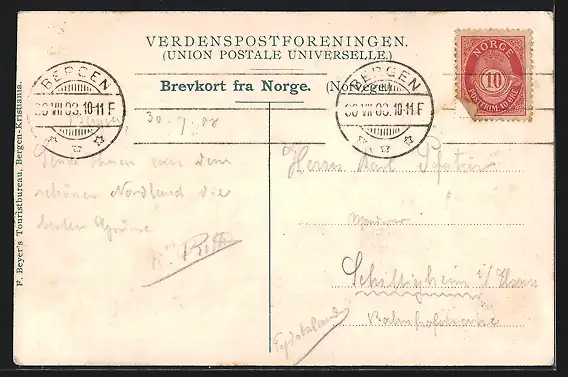 VERDENSPOSTFORENINGEN.
(UNION POSTALE UNIVERSELLE.)
Brevkort fra Norge. (Norvège).
BERGEN
30 VII 08. 10-11 F
BERGEN
30 VII 08. 10-11 F
NORGE
10
POSTFRIM. 10 ØRE
30.7.08
Sende Ihnen aus dem
schönen Nordland die
besten Grüsse
Roth
Herrn Karl
Schiltigheim i/
Bahnhofstrasse
Tydskland
F. Beyer's Touristbureau, Bergen-Kristiania.